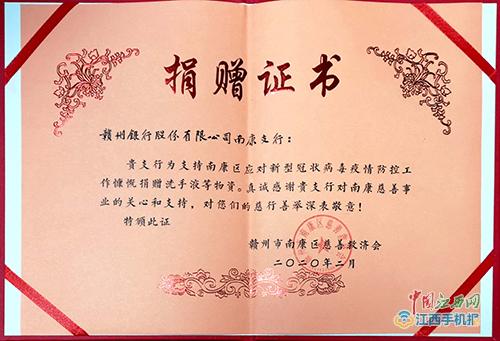 捐赠证书
赣州银行股份有限公司南康支行：
贵支行为支持南康区应对新型冠状病毒疫情防控工
作慷慨捐赠洗手液等物资。真诚感谢贵支行对南康慈善事
业的关心和支持，对您们的慈行善举深表敬意！
特颁此证
赣州市南康区慈善救济会
二〇二〇年二月
中国江西网
江西手机报